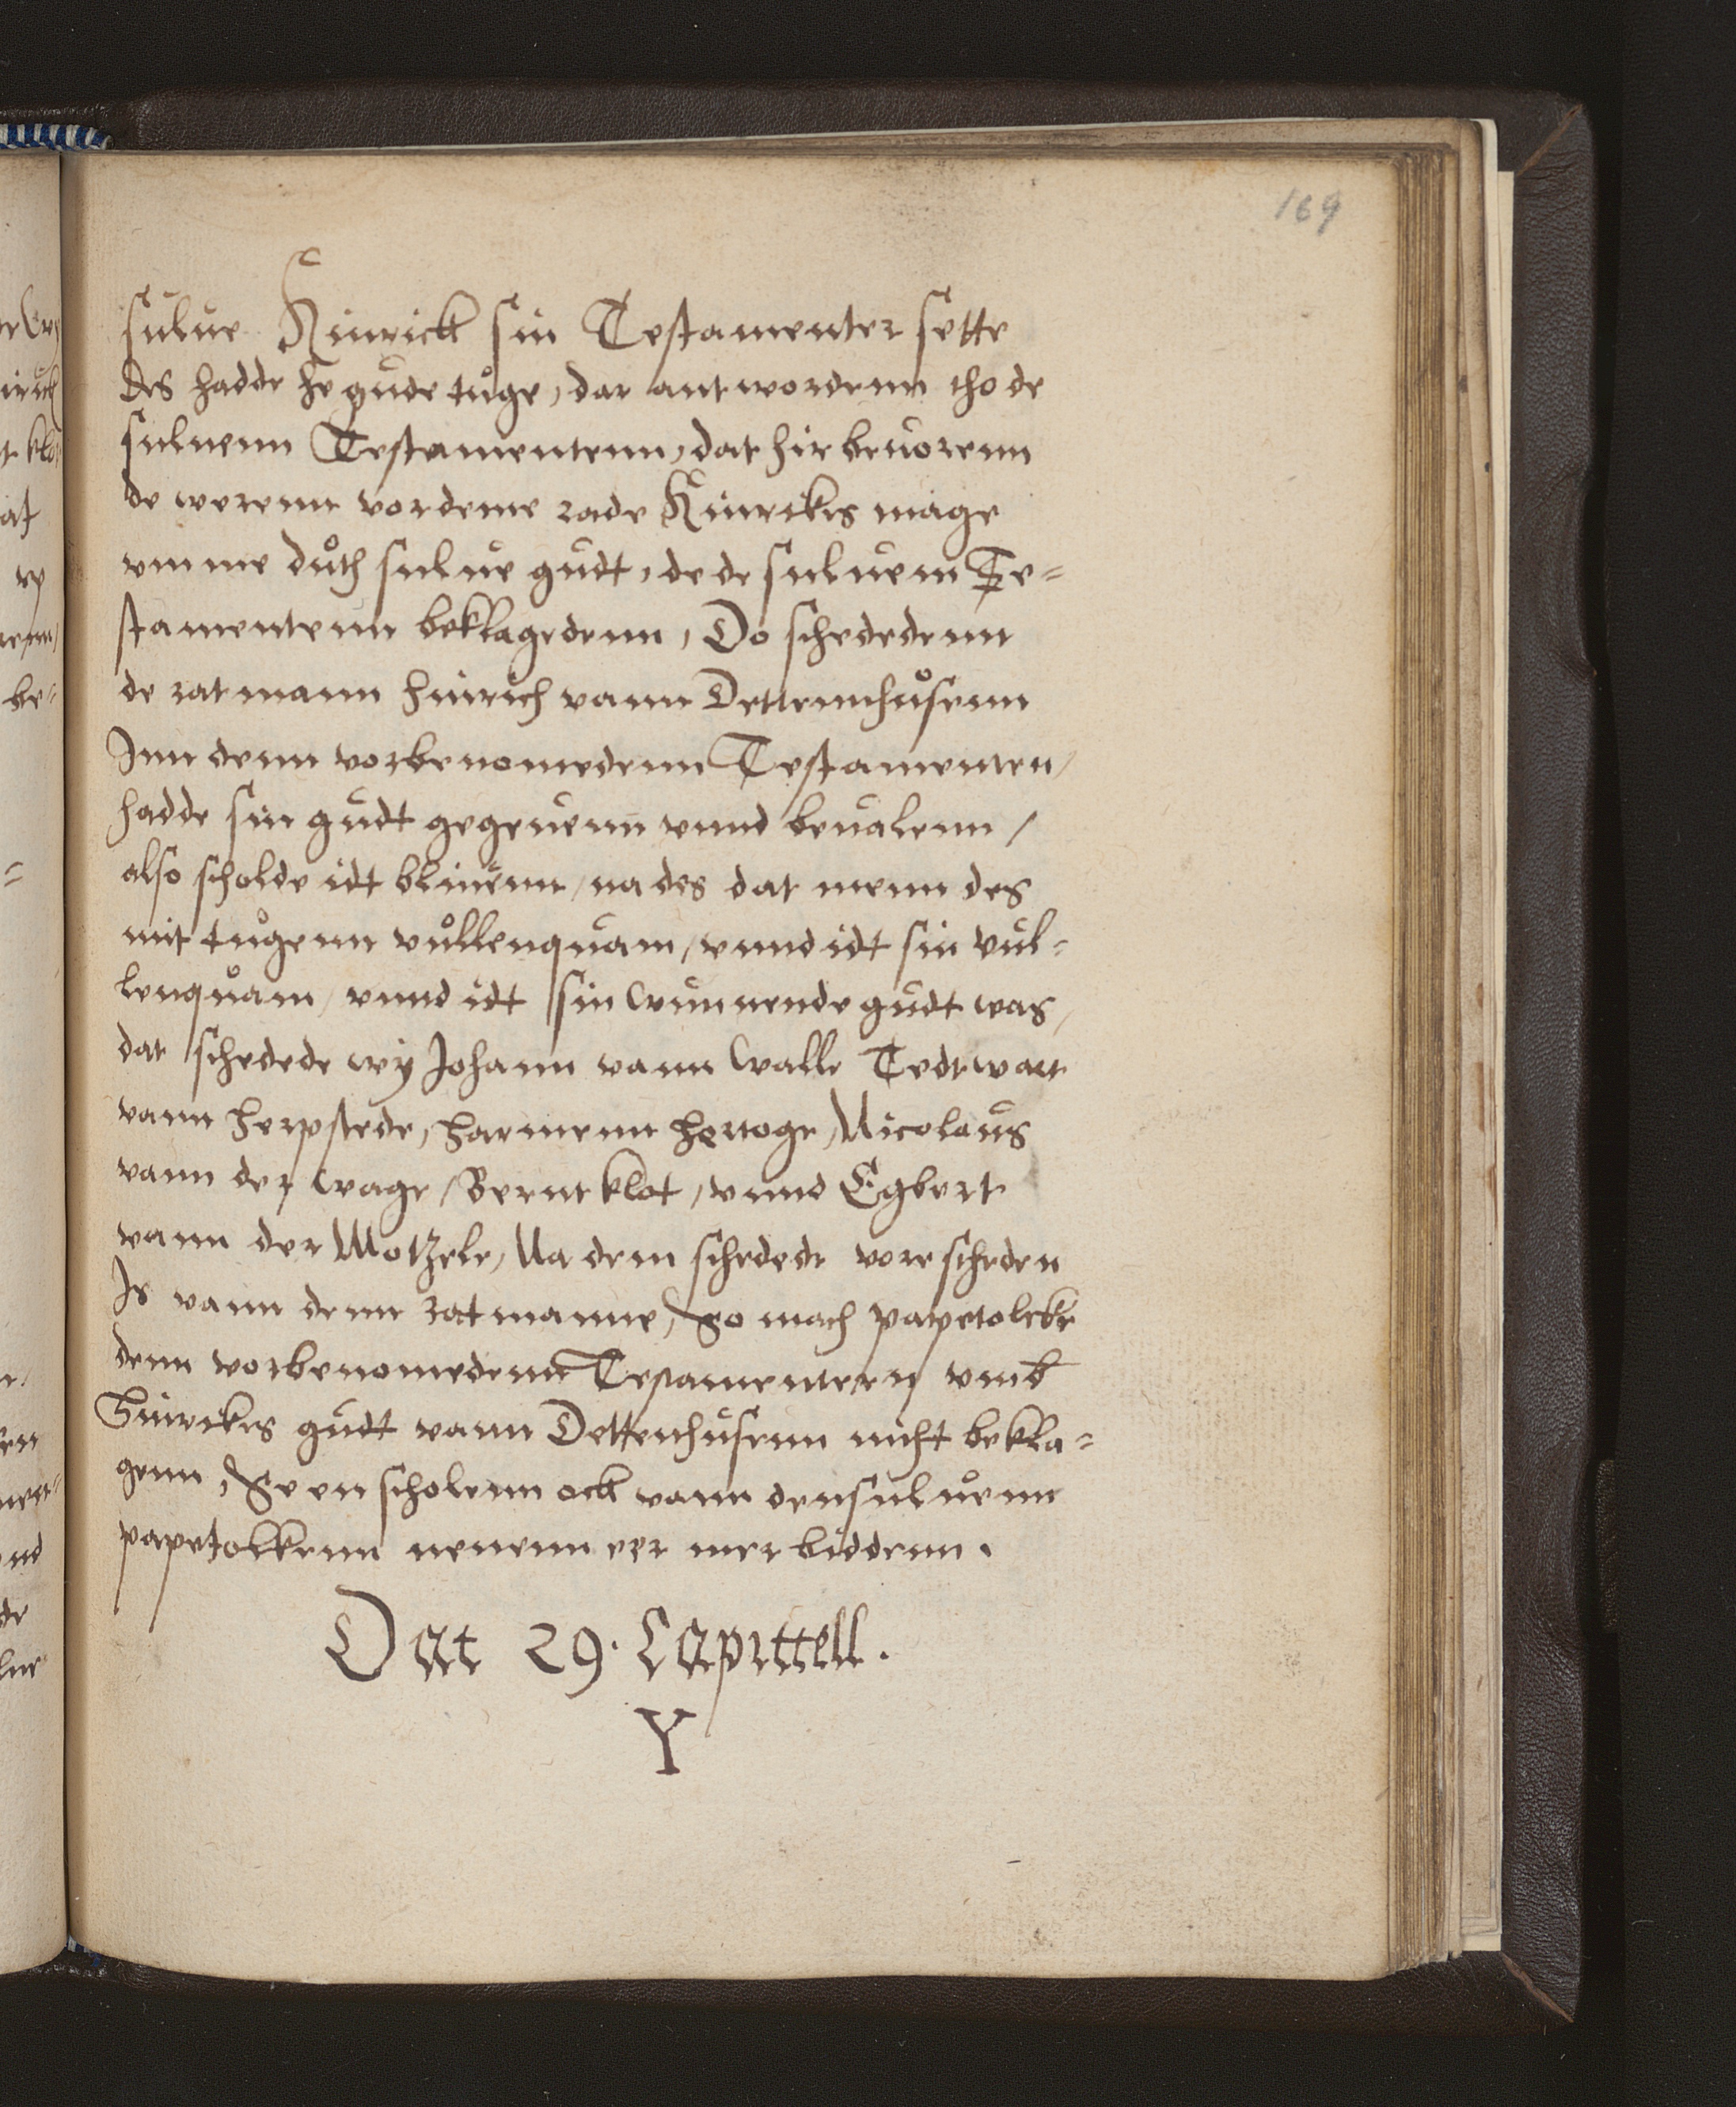 169
sulue Hinrick sin Testamenter sette
des hadde he gude tůge, dar antwordenn tho de
suluenn Testamentenn, dat hir beuorenn
de werenn vor deme rade Hinrikes mage
vmme důth sulue gudt, de de suluenn Te=
stamentenn beklagedenn, Do schededenn
de ratmann Hinrich vann Dettennhůsenn
Inn denn vorbenomedenn Testamenten,
hadde sin gudt gegeuenn vnnd beualenn,
also scholde idt bliuenn, na des dat menn des
mit tůgenn vůllenquam, vnnd idt sin vul=
lenquam, vnnd idt sin wunnende gudt was,
dat schedede wy Johann vann Walle Tedtwart
vann Herpstede, Harmenn Hertoge, Nicolaus
vann der Wage, Bernt Klot, vnnd Egbert
vann der Motzele, Na dem schedede vorescheden
Is vann denn ratmanne, So mach papetoleke
denn vorbenomedenn Testamentern vmb
Hinrikes gudt vann Dettenhusenn nicht bekla=
genn, Se en scholenn ock vann densuluenn
papetolkenn nenenn eer mer biddenn.
Dat 29. Capittell.
Y